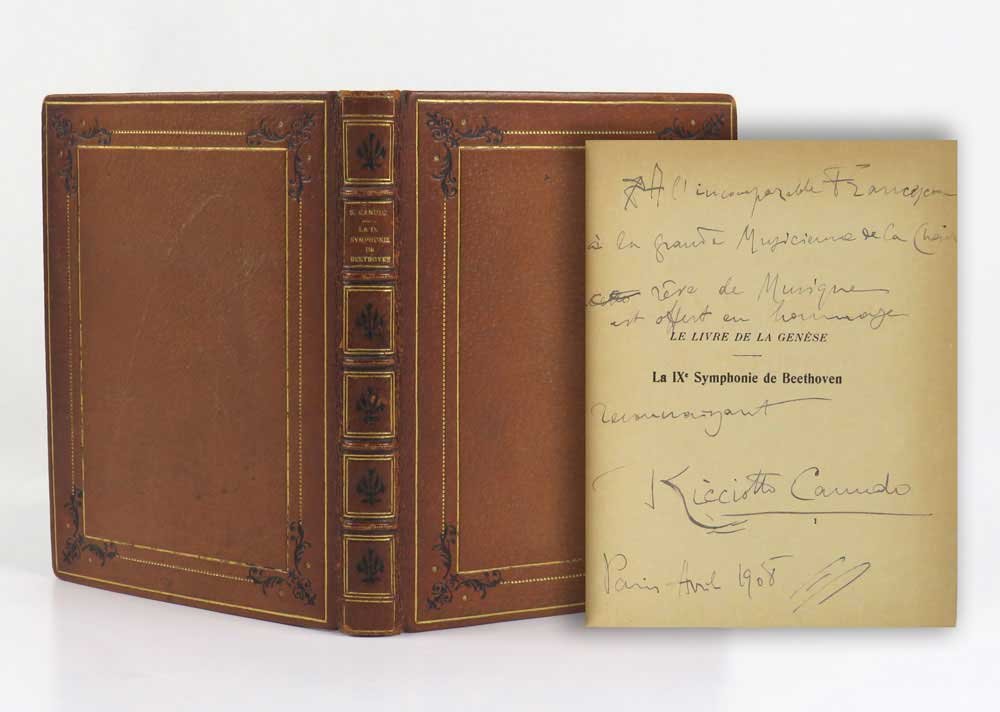 R. CANUDO
LA IX
SYMPHONIE
DE
BEETHOVEN
A l'incomparable
à la grande Musicienne de la
rêve de Musique
est offert en hommage
LE LIVRE DE LA GENÈSE
La IXe Symphonie de Beethoven
reconnaissant
Ricciotto Canudo
1
Paris Avril 1908